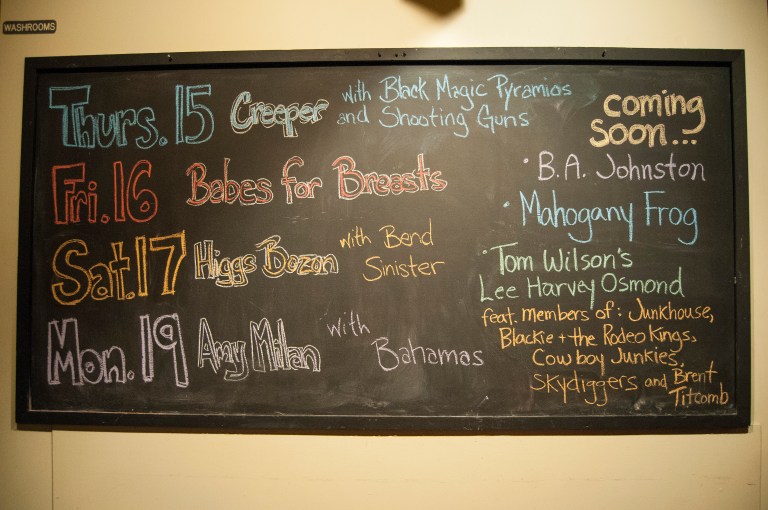 WASHROOMS
Thurs. 15 Creeper with Black Magic Pyramids
and Shooting Guns
Fri. 16 Babes for Breasts
Sat. 17 Higgs Bozon with Bend
Sinister
Mon. 19 Amy Milan with
Bahamas
coming
soon...
· B.A. Johnston
· Mahogany Frog
· Tom Wilson's
Lee Harvey Osmond
feat. members of: Junkhouse,
Blackie + the Rodeo Kings,
Cowboy Junkies,
Skydiggers and Brent
Titcomb